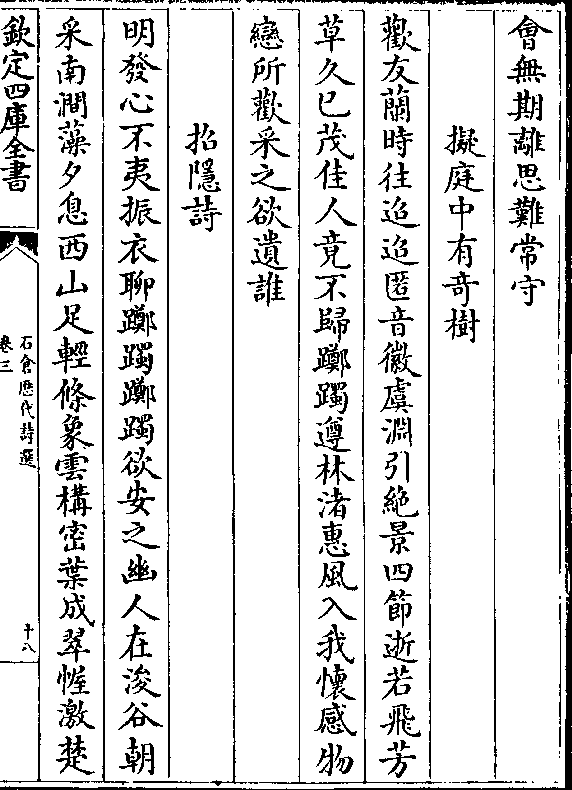 會無期離思難常守
擬庭中有奇樹
歡友蘭時往迢迢匿音徽虞淵引絶景四節逝若飛芳
草久已茂佳人竟不歸躑躅遵林渚惠風入我懷感物
戀所歡采之欲遺誰
招隱詩
明發心不夷振衣聊躑躅躑躅欲安之幽人在浚谷朝
采南澗藻夕息西山足輕條象雲構密葉成翠幄激楚
欽定四庫全書
石倉歴代詩選
卷三
十八